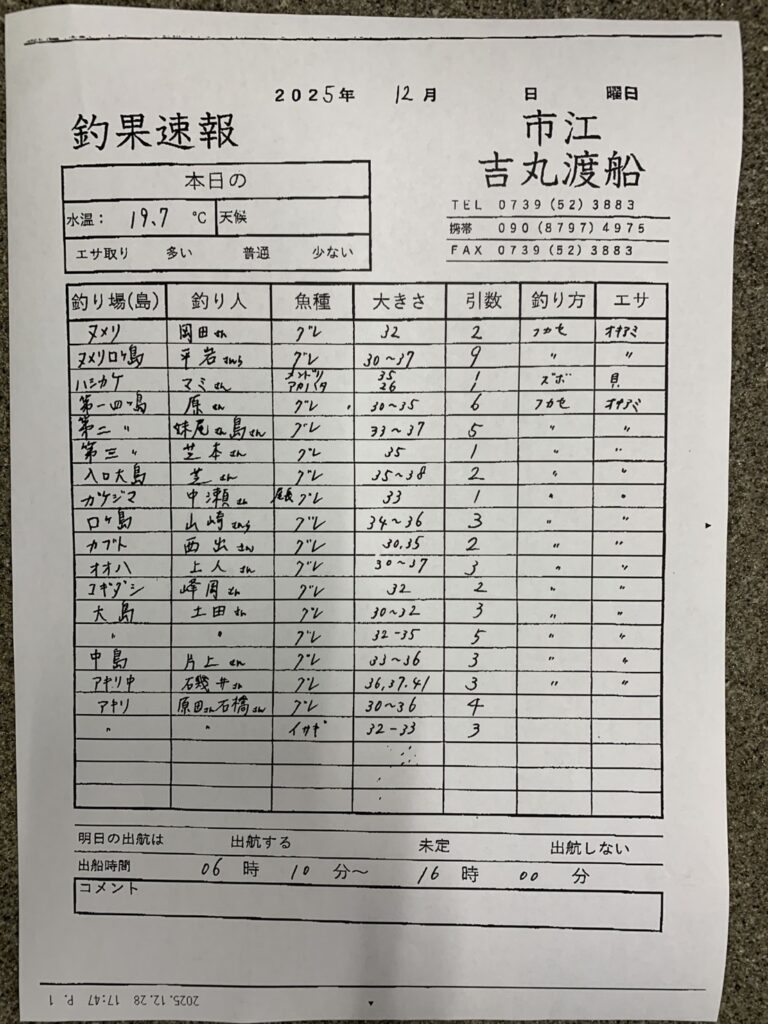 2025年 12月 日 曜日
釣果速報
市江
吉丸渡船
本日の
水温： 19.7 ℃ 天候
エサ取り 多い 普通 少ない
TEL 0739(52)3883
携帯 090(8797)4975
FAX 0739(52)3883
釣り場(島) 釣り人 魚種 大きさ 引数 釣り方 エサ
ヌメリ 岡田さん グレ 32 2 フカセ オキアミ
ヌメリロヶ島 平岩さんら グレ 30～37 9 〃 〃
ハシカケ マミさん 35 1 ズボ 貝
アカハタ 26
第一四ヶ島 原さん グレ 30～35 6 フカセ オキアミ
第二 〃 妹尾さん島さん グレ 33～37 5 〃 〃
第三 〃 芝本さん グレ 35 1 〃 〃
入口大島 芝さん グレ 35～38 2 〃 〃
ガケジマ 中瀬さん 尾長グレ 33 1 〃 〃
口ヶ島 山崎さんら グレ 34～36 3 〃 〃
カブト 西出さん グレ 30,35 2 〃 〃
オオハ 上人さん グレ 30～37 3 〃 〃
コギダシ 峰岡さん グレ 32 2 〃 〃
大島 土田さん グレ 30～32 3 〃 〃
〃 〃 グレ 32-35 5 〃 〃
中島 片上さん グレ 33～36 3 〃 〃
アキリ中 石磯井さん グレ 36,37.41 3 〃 〃
アキリ 原田さん石橋さん グレ 30～36 4
〃 〃 イサギ 32-33 3
明日の出航は 出航する 未定 出航しない
出船時間 06 時 10 分～ 16 時 00 分
コメント
2025.12.28 17:47 P. 1